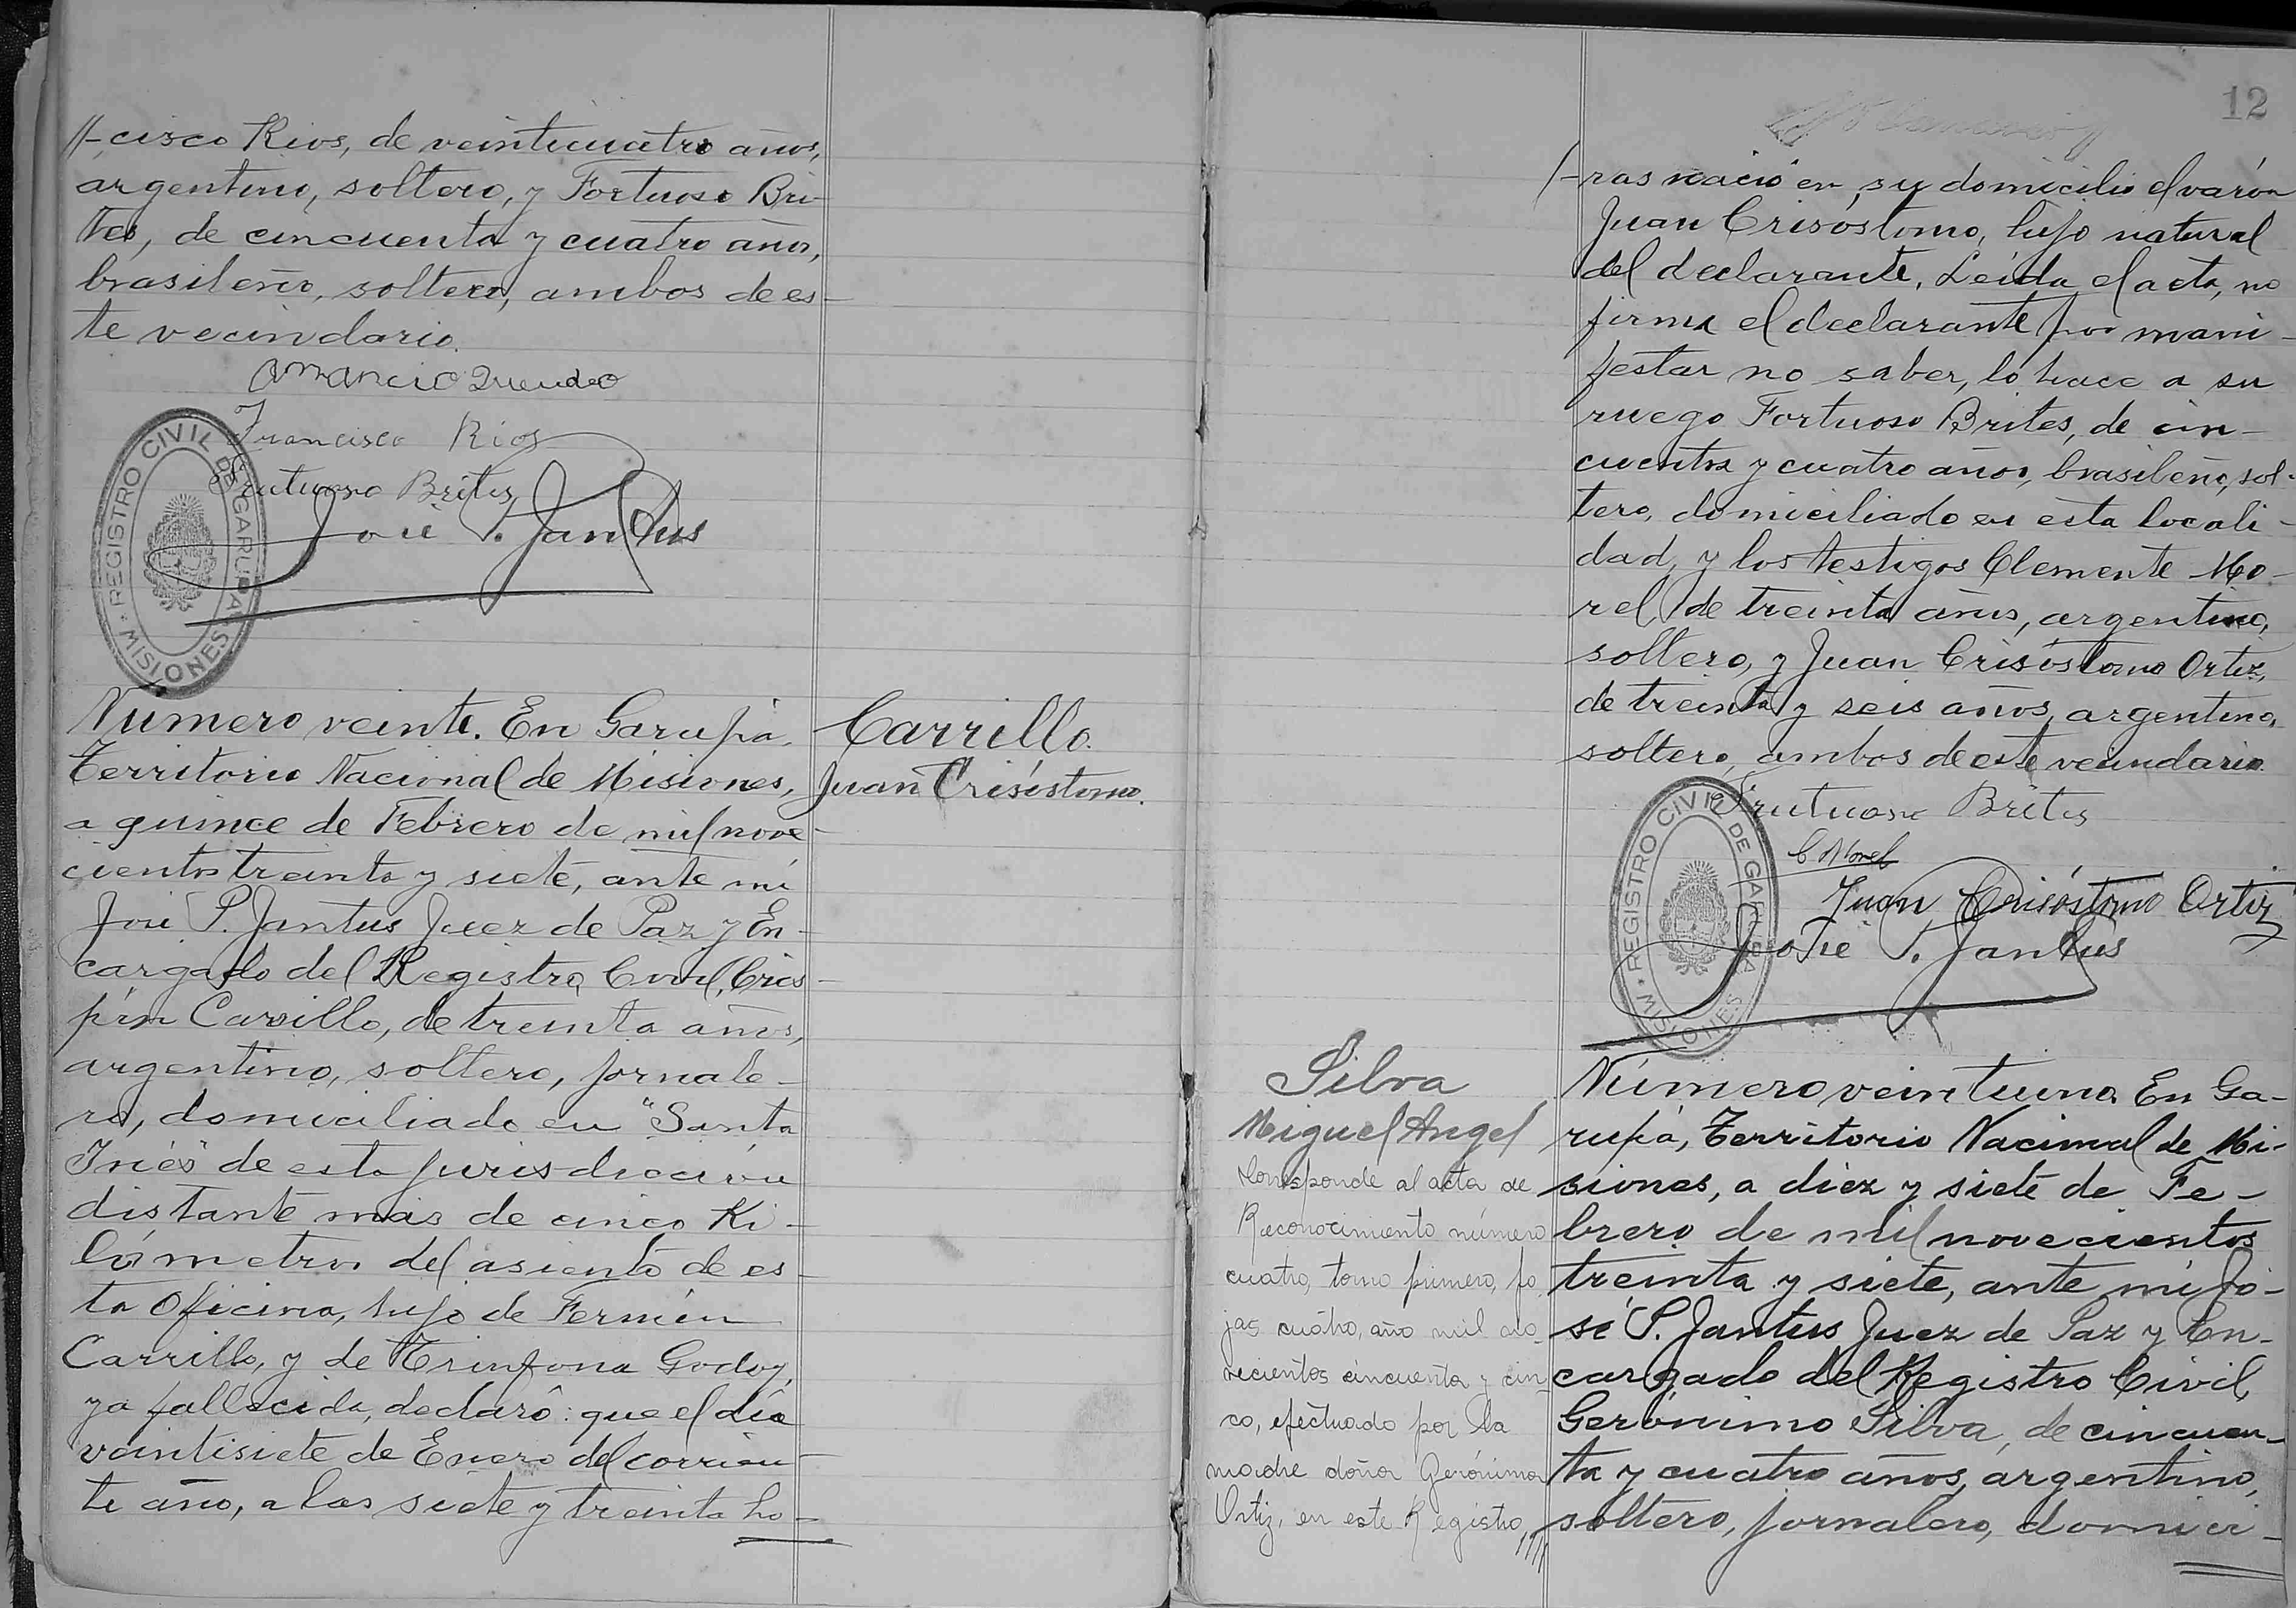 //-cisco Rios, de veinticuatro años,
argentino, soltero, y Fortuoso Bri-
tes, de cincuenta y cuatro años,
brasileño, soltero, ambos de es-
te vecindario.
Amancio
Francisco Rios
Frutuoso Brites
José P. Jantus
REGISTRO CIVIL DE GARUPA
MISIONES
Número veinte. En Garupá,
Territorio Nacional de Misiones,
a quince de Febrero de mil nove-
cientos treinta y siete, ante mi
José P. Jantus Juez de Paz y En-
cargado del Registro Civil, Cris-
pín Carrillo, de treinta años,
argentino, soltero, jornale-
ro, domiciliado en "Santa
Inés" de esta jurisdicción
distante más de cinco Ki-
lómetros del asiento de es-
ta Oficina, hijo de Fermín
Carrillo, y de Trinfona Godoy,
ya fallecida, declaró: que el día
veintisiete de Enero del corrien-
te año, a las siete y treinta ho-
Carrillo.
Juan Crisóstomo.
12
/-ras nació en su domicilio el varón
Juan Crisóstomo, hijo natural
del declarante. Leída el acta, no
firma el declarante por mani-
festar no saber, lo hace a su
ruego Fortuoso Brites, de cin-
cuenta y cuatro años, brasileño, sol-
tero, domiciliado en esta locali-
dad, y los testigos Clemente Mo-
rel, de treinta años, argentino,
soltero, y Juan Crisóstomo Ortiz,
de treinta y seis años, argentino,
soltero, ambos de este vecindario.
Frutuoso Brites
C Morel
Juan Crisóstomo Ortiz
José P. Jantus
REGISTRO CIVIL DE GARUPA
MISIONES
Silva
Miguel Angel
Corresponde al acta de
Reconocimiento número
cuatro, tomo primero, fo-
jas cuatro, año mil no-
vecientos cincuenta y cin-
co, efectuado por la
madre doña Gerónima
Ortiz, en este Registro,////
Número veintiuno. En Ga-
rupá, Territorio Nacional de Mi-
siones, a diez y siete de Fe-
brero de mil novecientos
treinta y siete, ante mi Jo-
sé P. Jantus Juez de Paz y En-
cargado del Registro Civil,
Gerónimo Silva, de cincuen-
ta y cuatro años, argentino,
soltero, jornalero, domici-